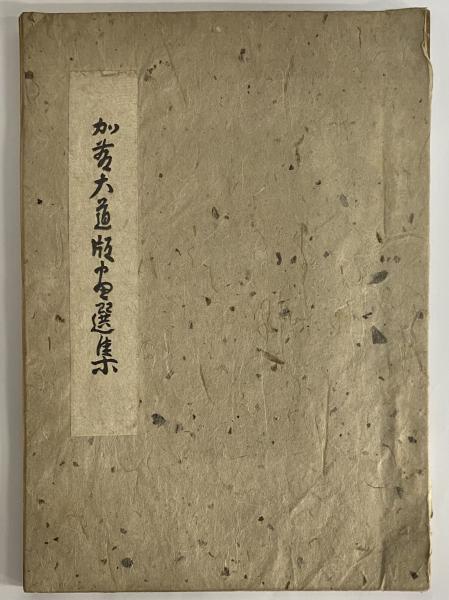 加藤大道版画選集